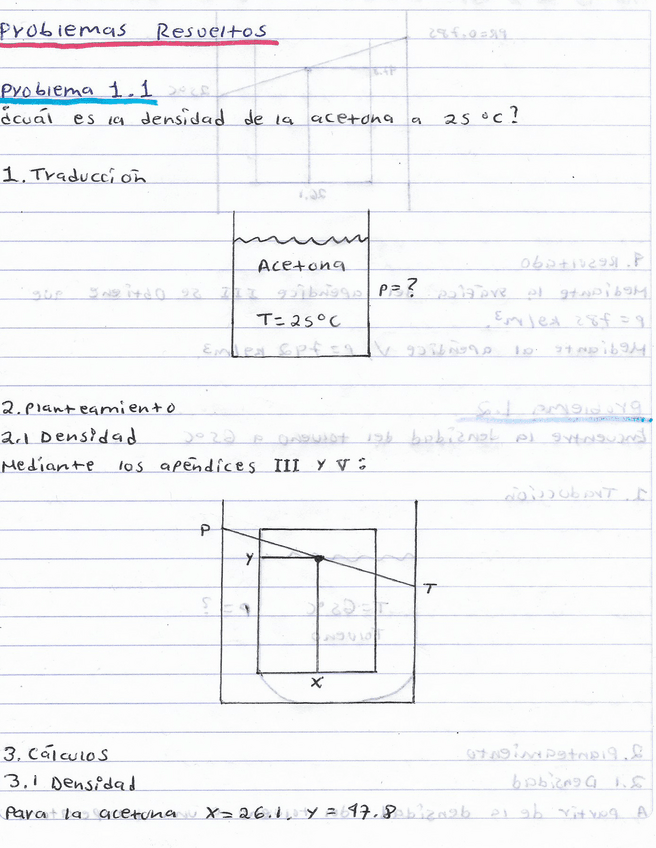 Problemas Resueltos
Problema 1.1
¿cuál es la densidad de la acetona a 25 °C?
1. Traducción
Acetona
ρ=?
T=25°C
2. Planteamiento
2.1 Densidad
Mediante los apéndices III y V:
ρ
y
T
X
3. Cálculos
3.1 Densidad
Para la acetona X=26.1, Y=47.8